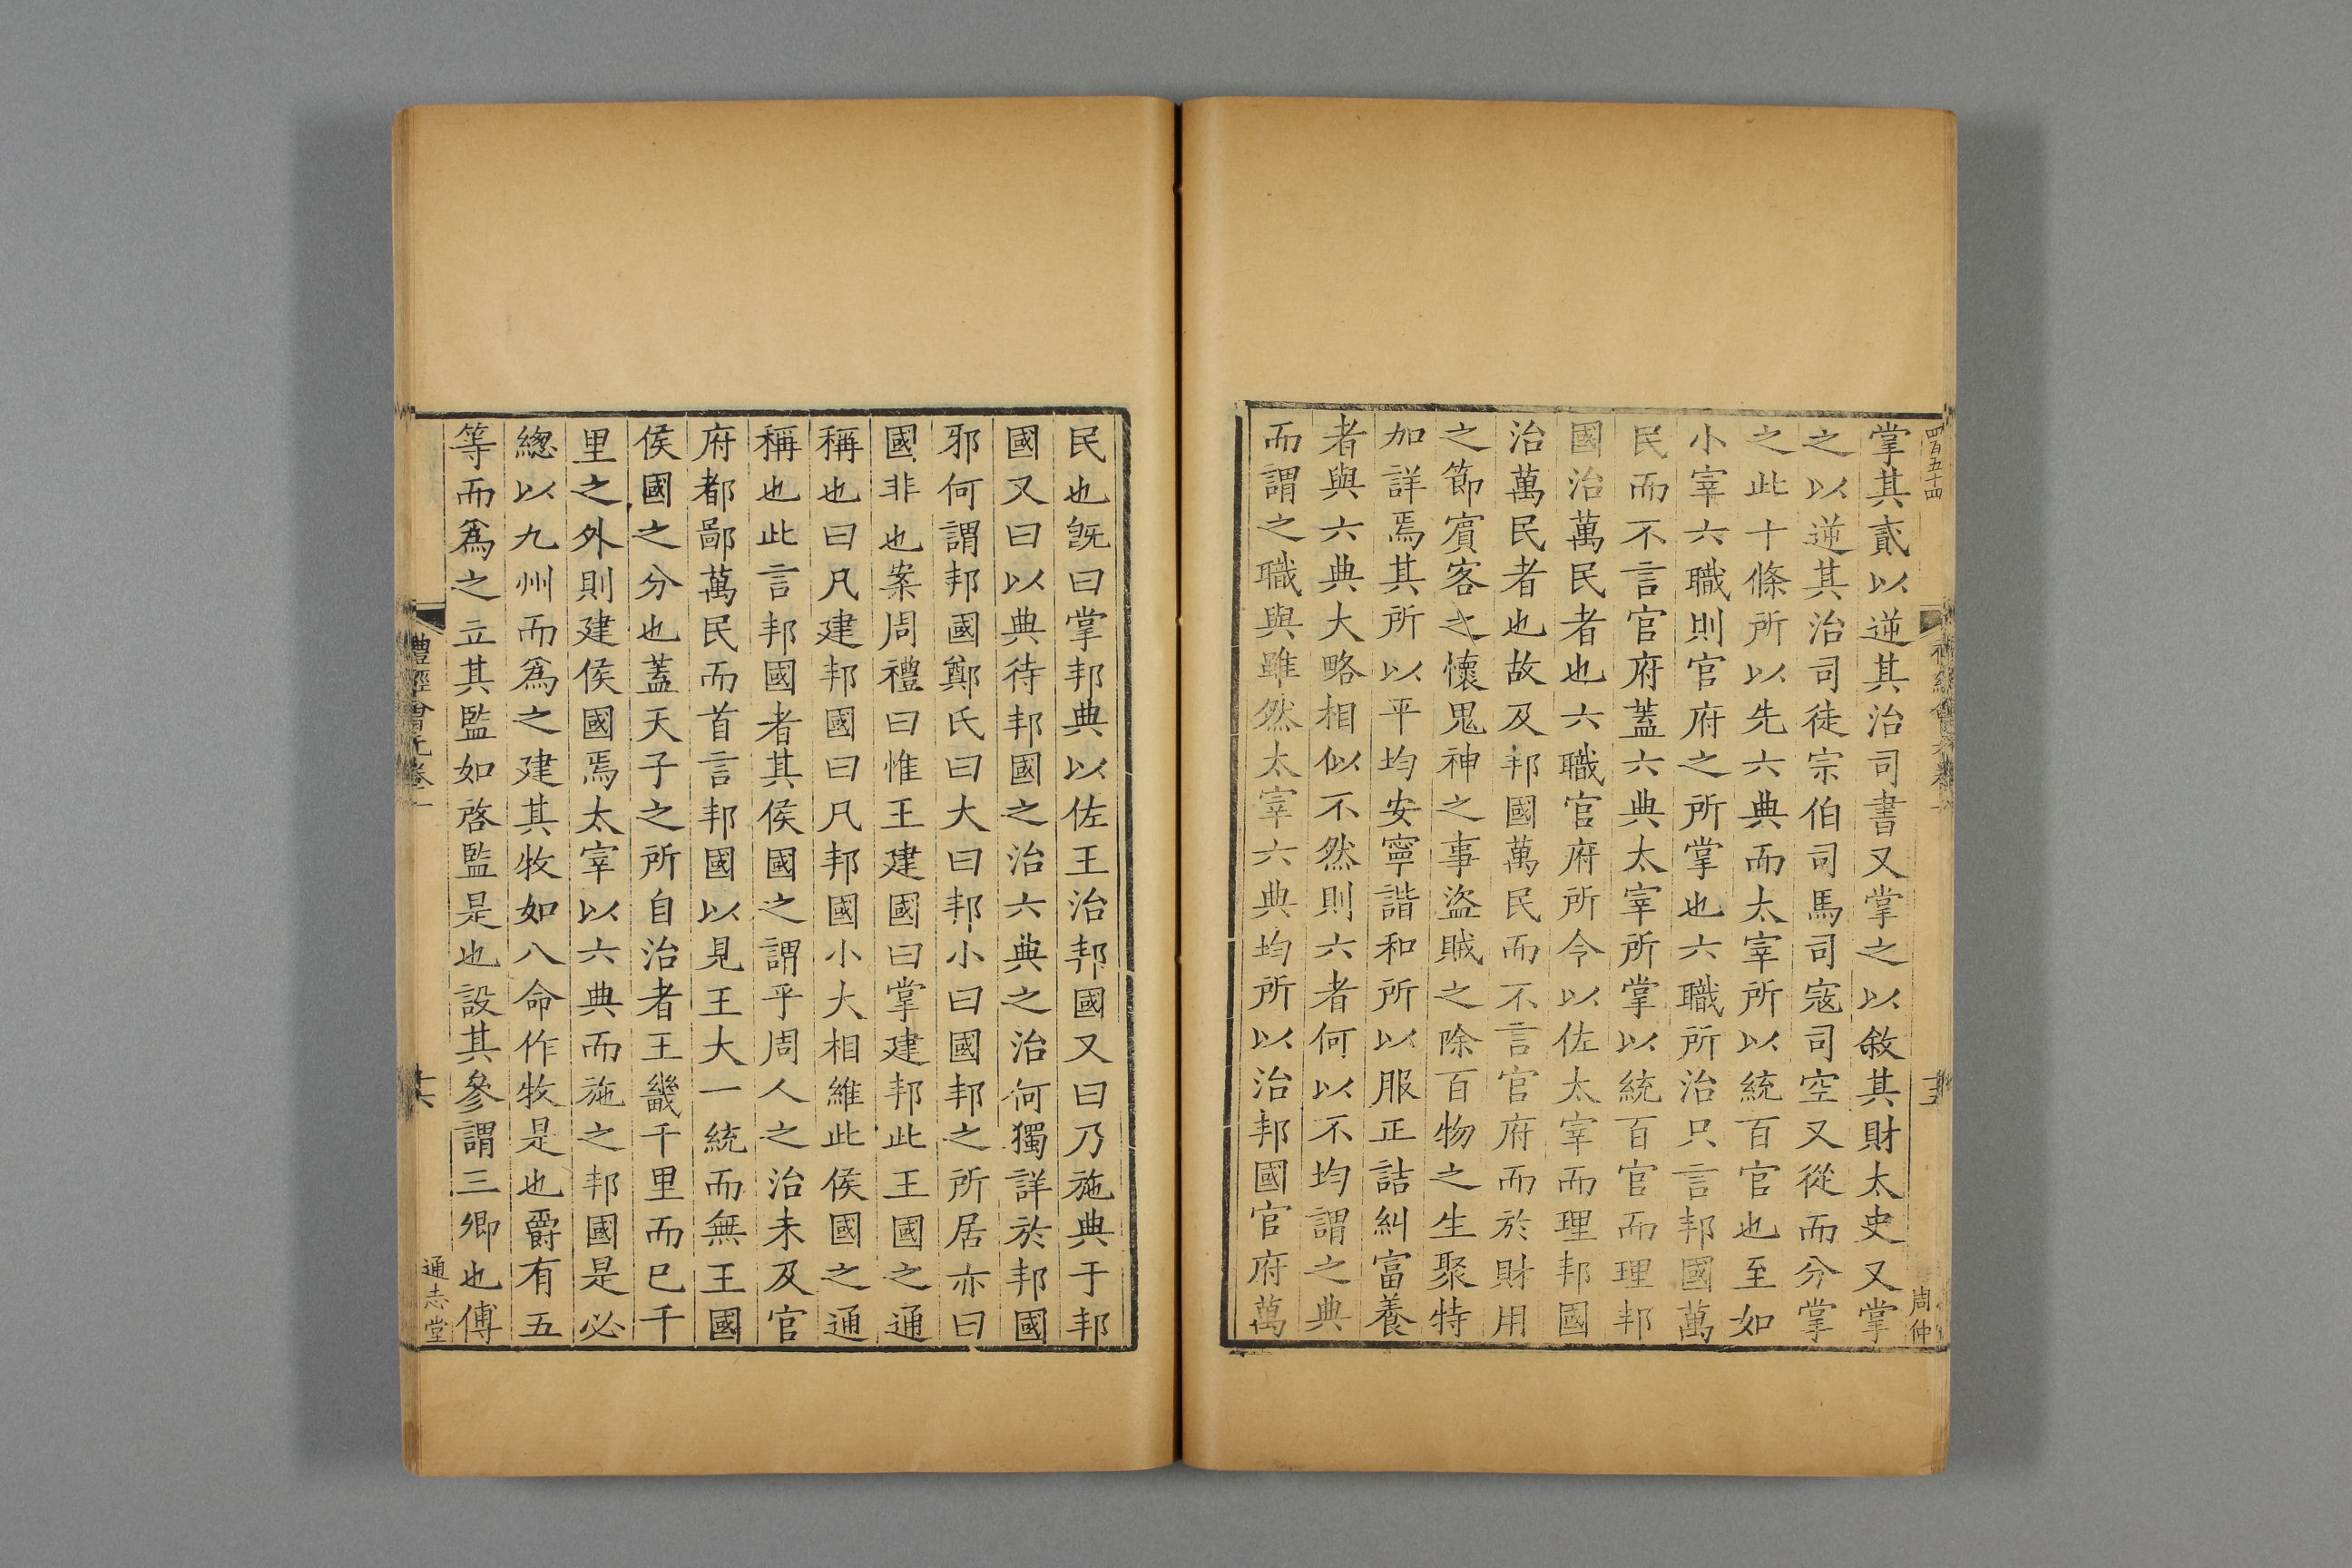 四百五十四
周仲
掌其貳以逆其治司書又掌之以敘其財太史又掌
之以逆其治司徒宗伯司馬司寇司空又從而分掌
之此十條所以先六典而太宰所以統百官也至如
小宰六職則官府之所掌也六職所治只言邦國萬
民而不言官府蓋六典太宰所掌以統百官而理邦
國治萬民者也六職官府所令以佐太宰而理邦國
治萬民者也故及邦國萬民而不言官府而於財用
之節賓客之懷鬼神之事盜賊之除百物之生聚特
加詳焉其所以平均安寧諧和所以服正詰糾富養
者與六典大略相似不然則六者何以不均謂之典
而謂之職與雖然太宰六典均所以治邦國官府萬
民也旣曰掌邦典以佐王治邦國又曰乃施典于邦
國又曰以典待邦國之治六典之治何獨詳於邦國
邪何謂邦國鄭氏曰大曰邦小曰國邦之所居亦曰
國非也案周禮曰惟王建國曰掌建邦此王國之通
稱也曰凡建邦國曰凡邦國小大相維此侯國之通
稱也此言邦國者其侯國之謂乎周人之治未及官
府都鄙萬民而首言邦國以見王大一統而無王國
侯國之分也蓋天子之所自治者王畿千里而巳千
里之外則建侯國焉太宰以六典而施之邦國是必
總以九州而爲之建其牧如八命作牧是也爵有五
等而爲之立其監如啓監是也設其參謂三卿也傅
禮經會元卷一
十六
通志堂